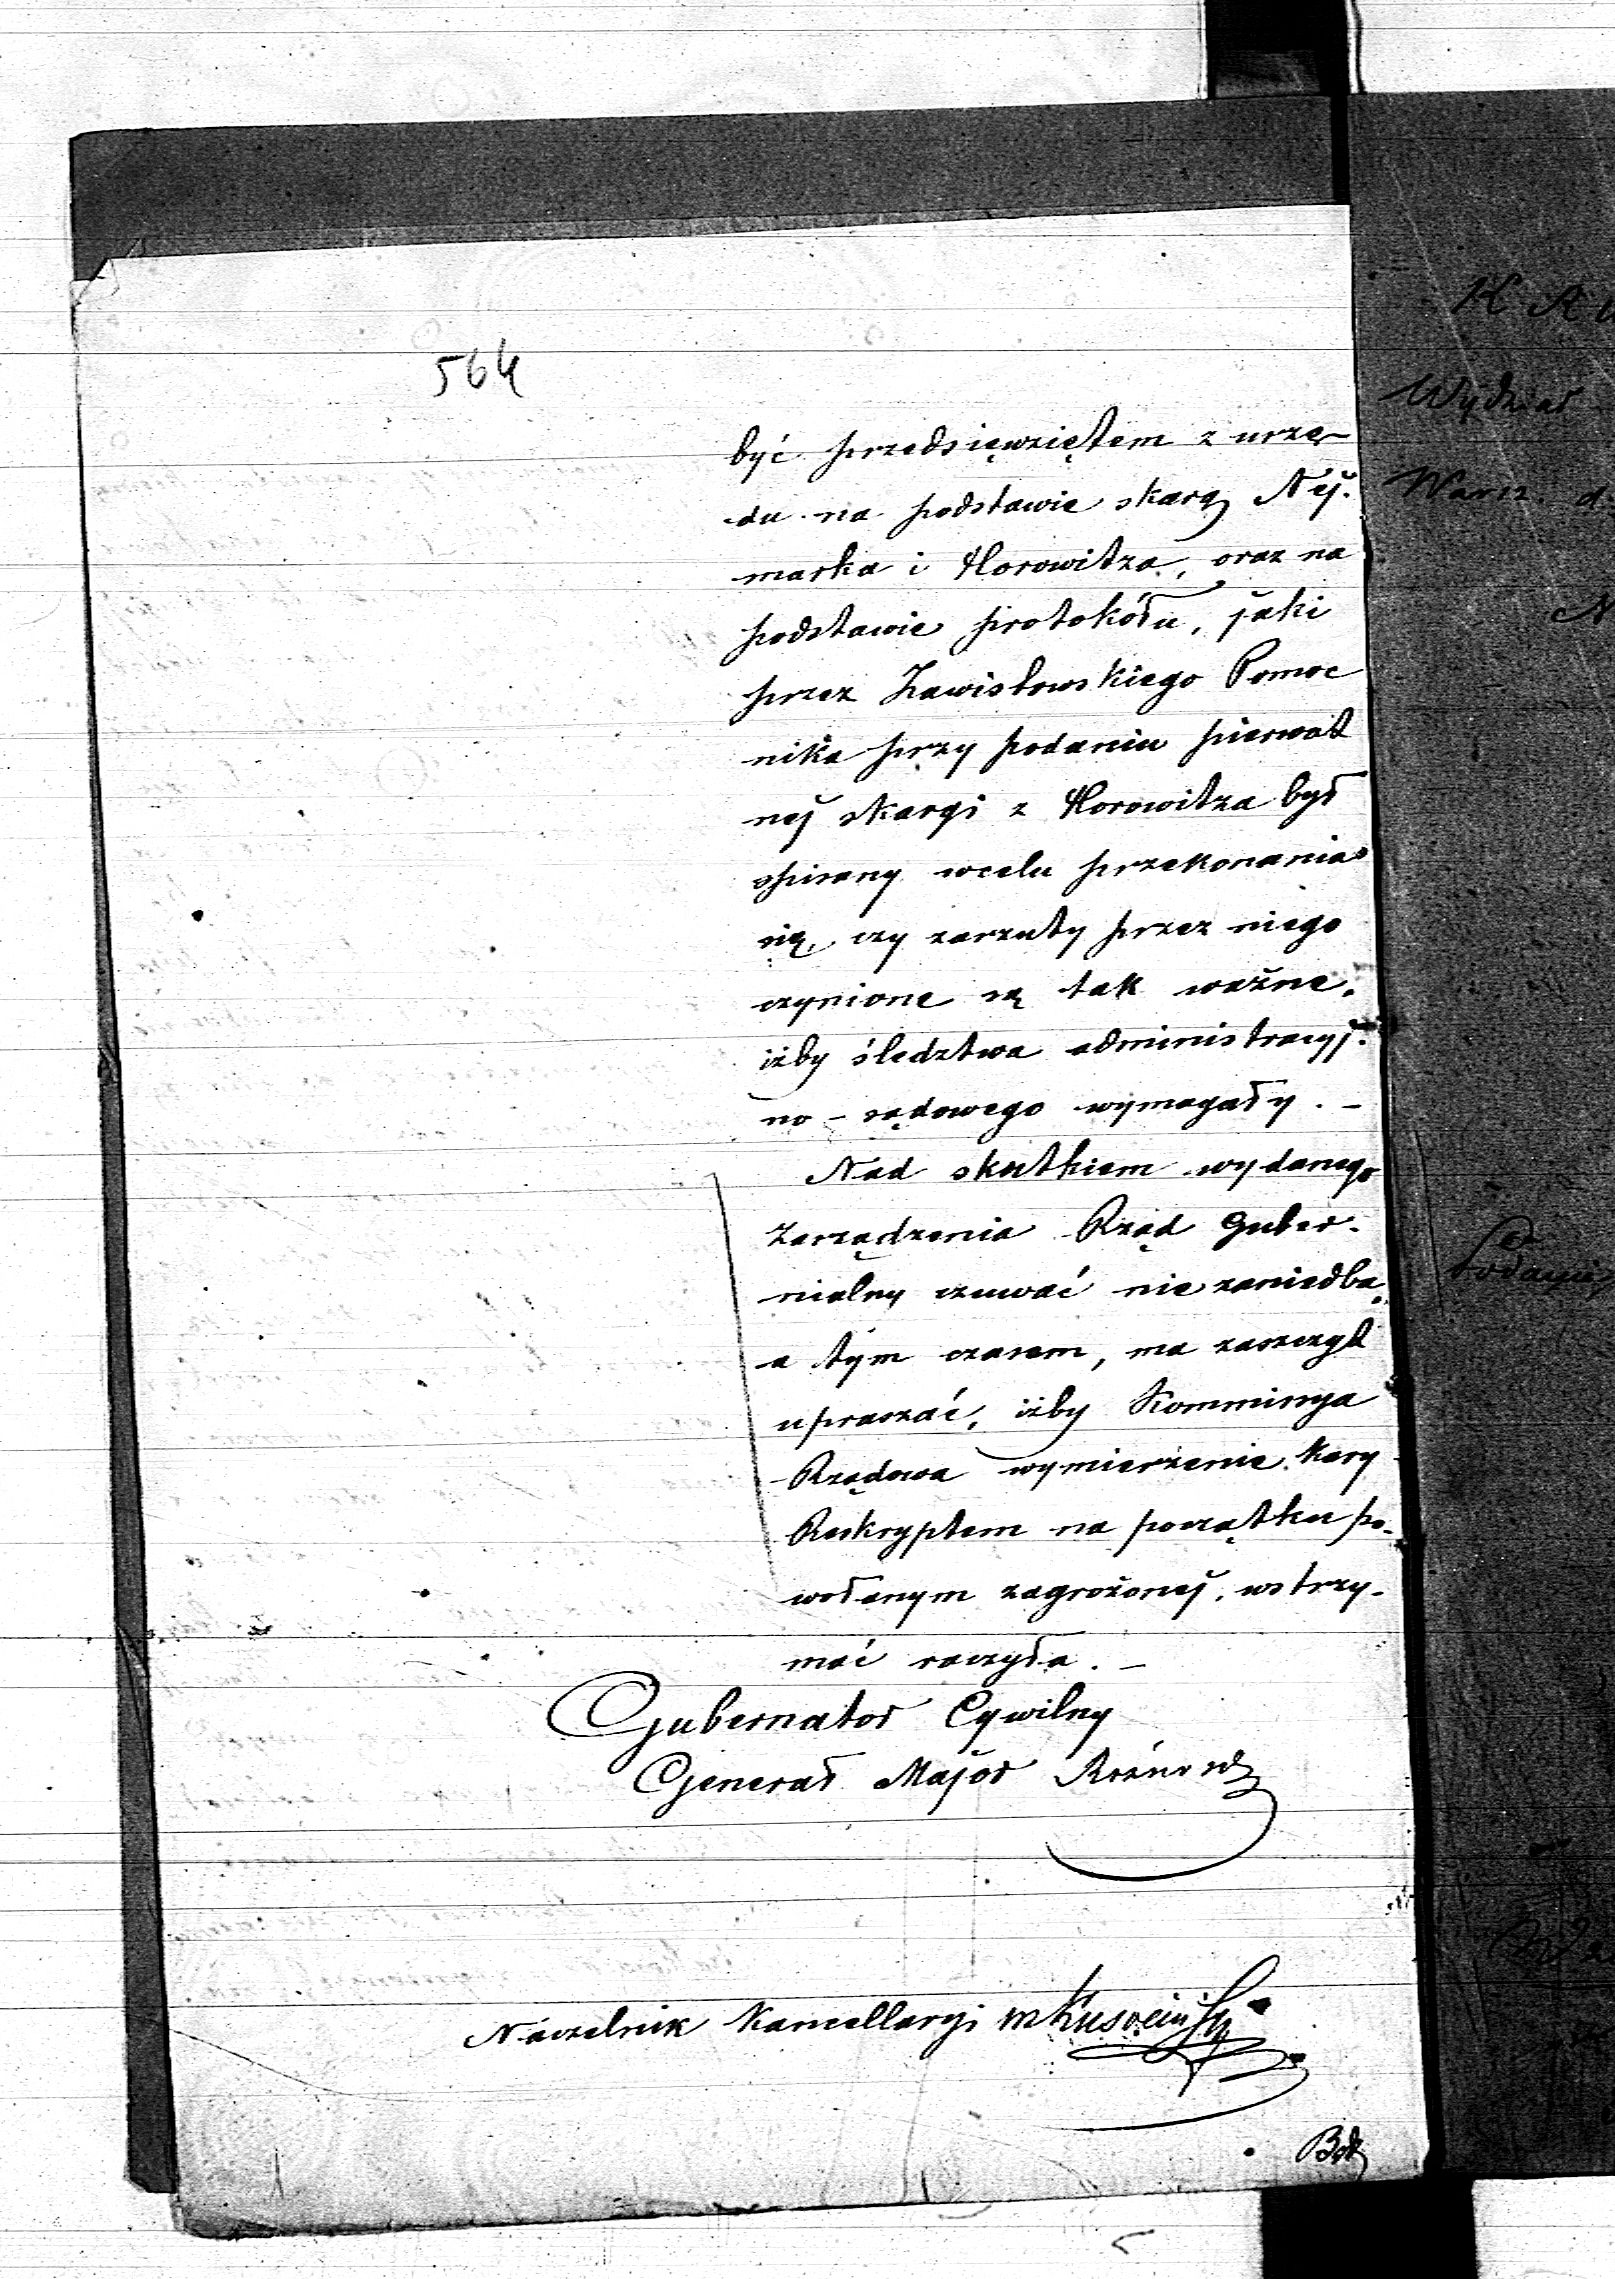 564
być przedsięwziętem z urzę-
du na podstawie skarg Nej-
marka i Horowitza, oraz na
podstawie protokółu, jaki
przez Zawisłowskiego Pomoc
nika przy podaniu pierwot
nej skargi z Horowitza był
spisany wcelu przekonania
się, czy zarzuty przez niego
czynione są tak ważne,
iżby śledztwa administracyj-
no - sądowego wymagały. -
Nad skutkiem wydanego
Zarządzenia Rząd Guber-
nialny czuwać nie zaniedba,
a tym czasem, ma zaszczyt
upraszać, iżby Kommissya
Rządowa wymierzenie kary
Reskryptem na początku po-
wołanym zagrożonej, wstrzy-
mać raczyła. -
Gubernator Cywilny
Generał Major
Naczelnik Kancellaryi
Wydział
Warsz. d.